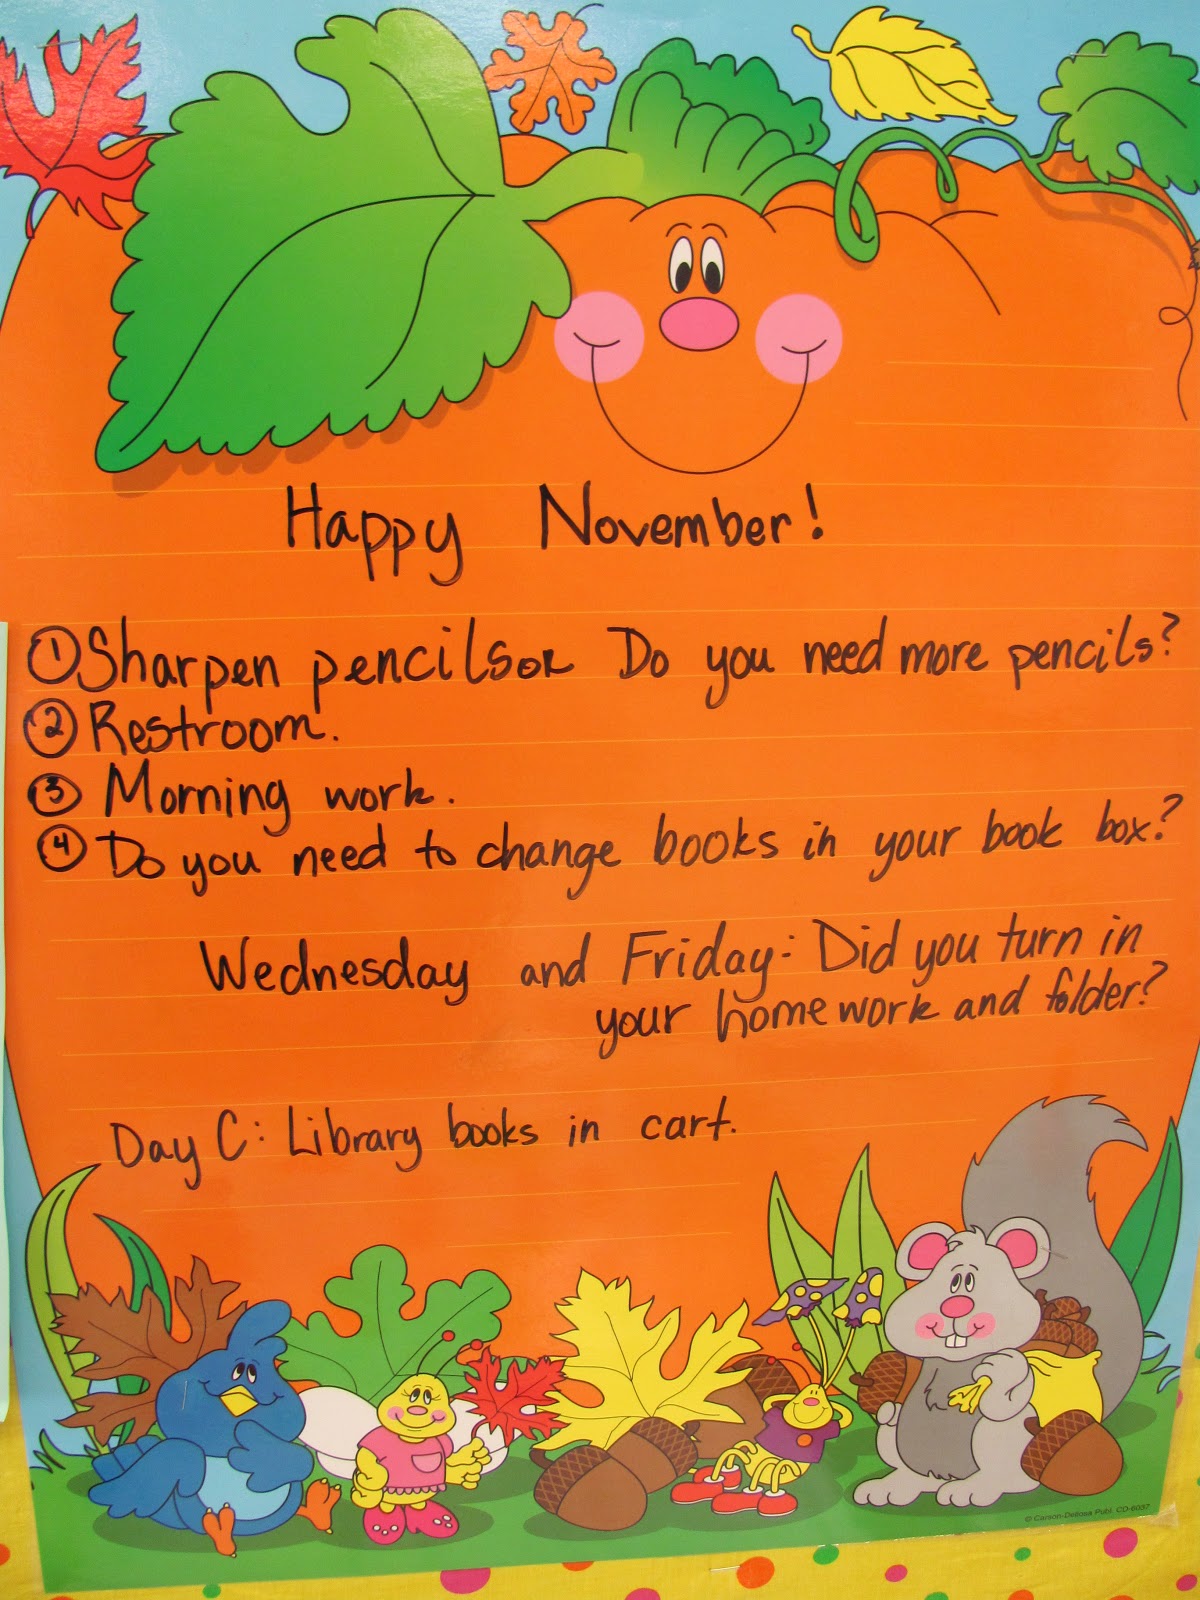 Happy November!
① Sharpen pencils OR Do you need more pencils?
② Restroom.
③ Morning work.
④ Do you need to change books in your book box?
Wednesday and Friday: Did you turn in
your homework and folder?
Day C: Library books in cart.
© Carson-Dellosa Publ. CD-6037